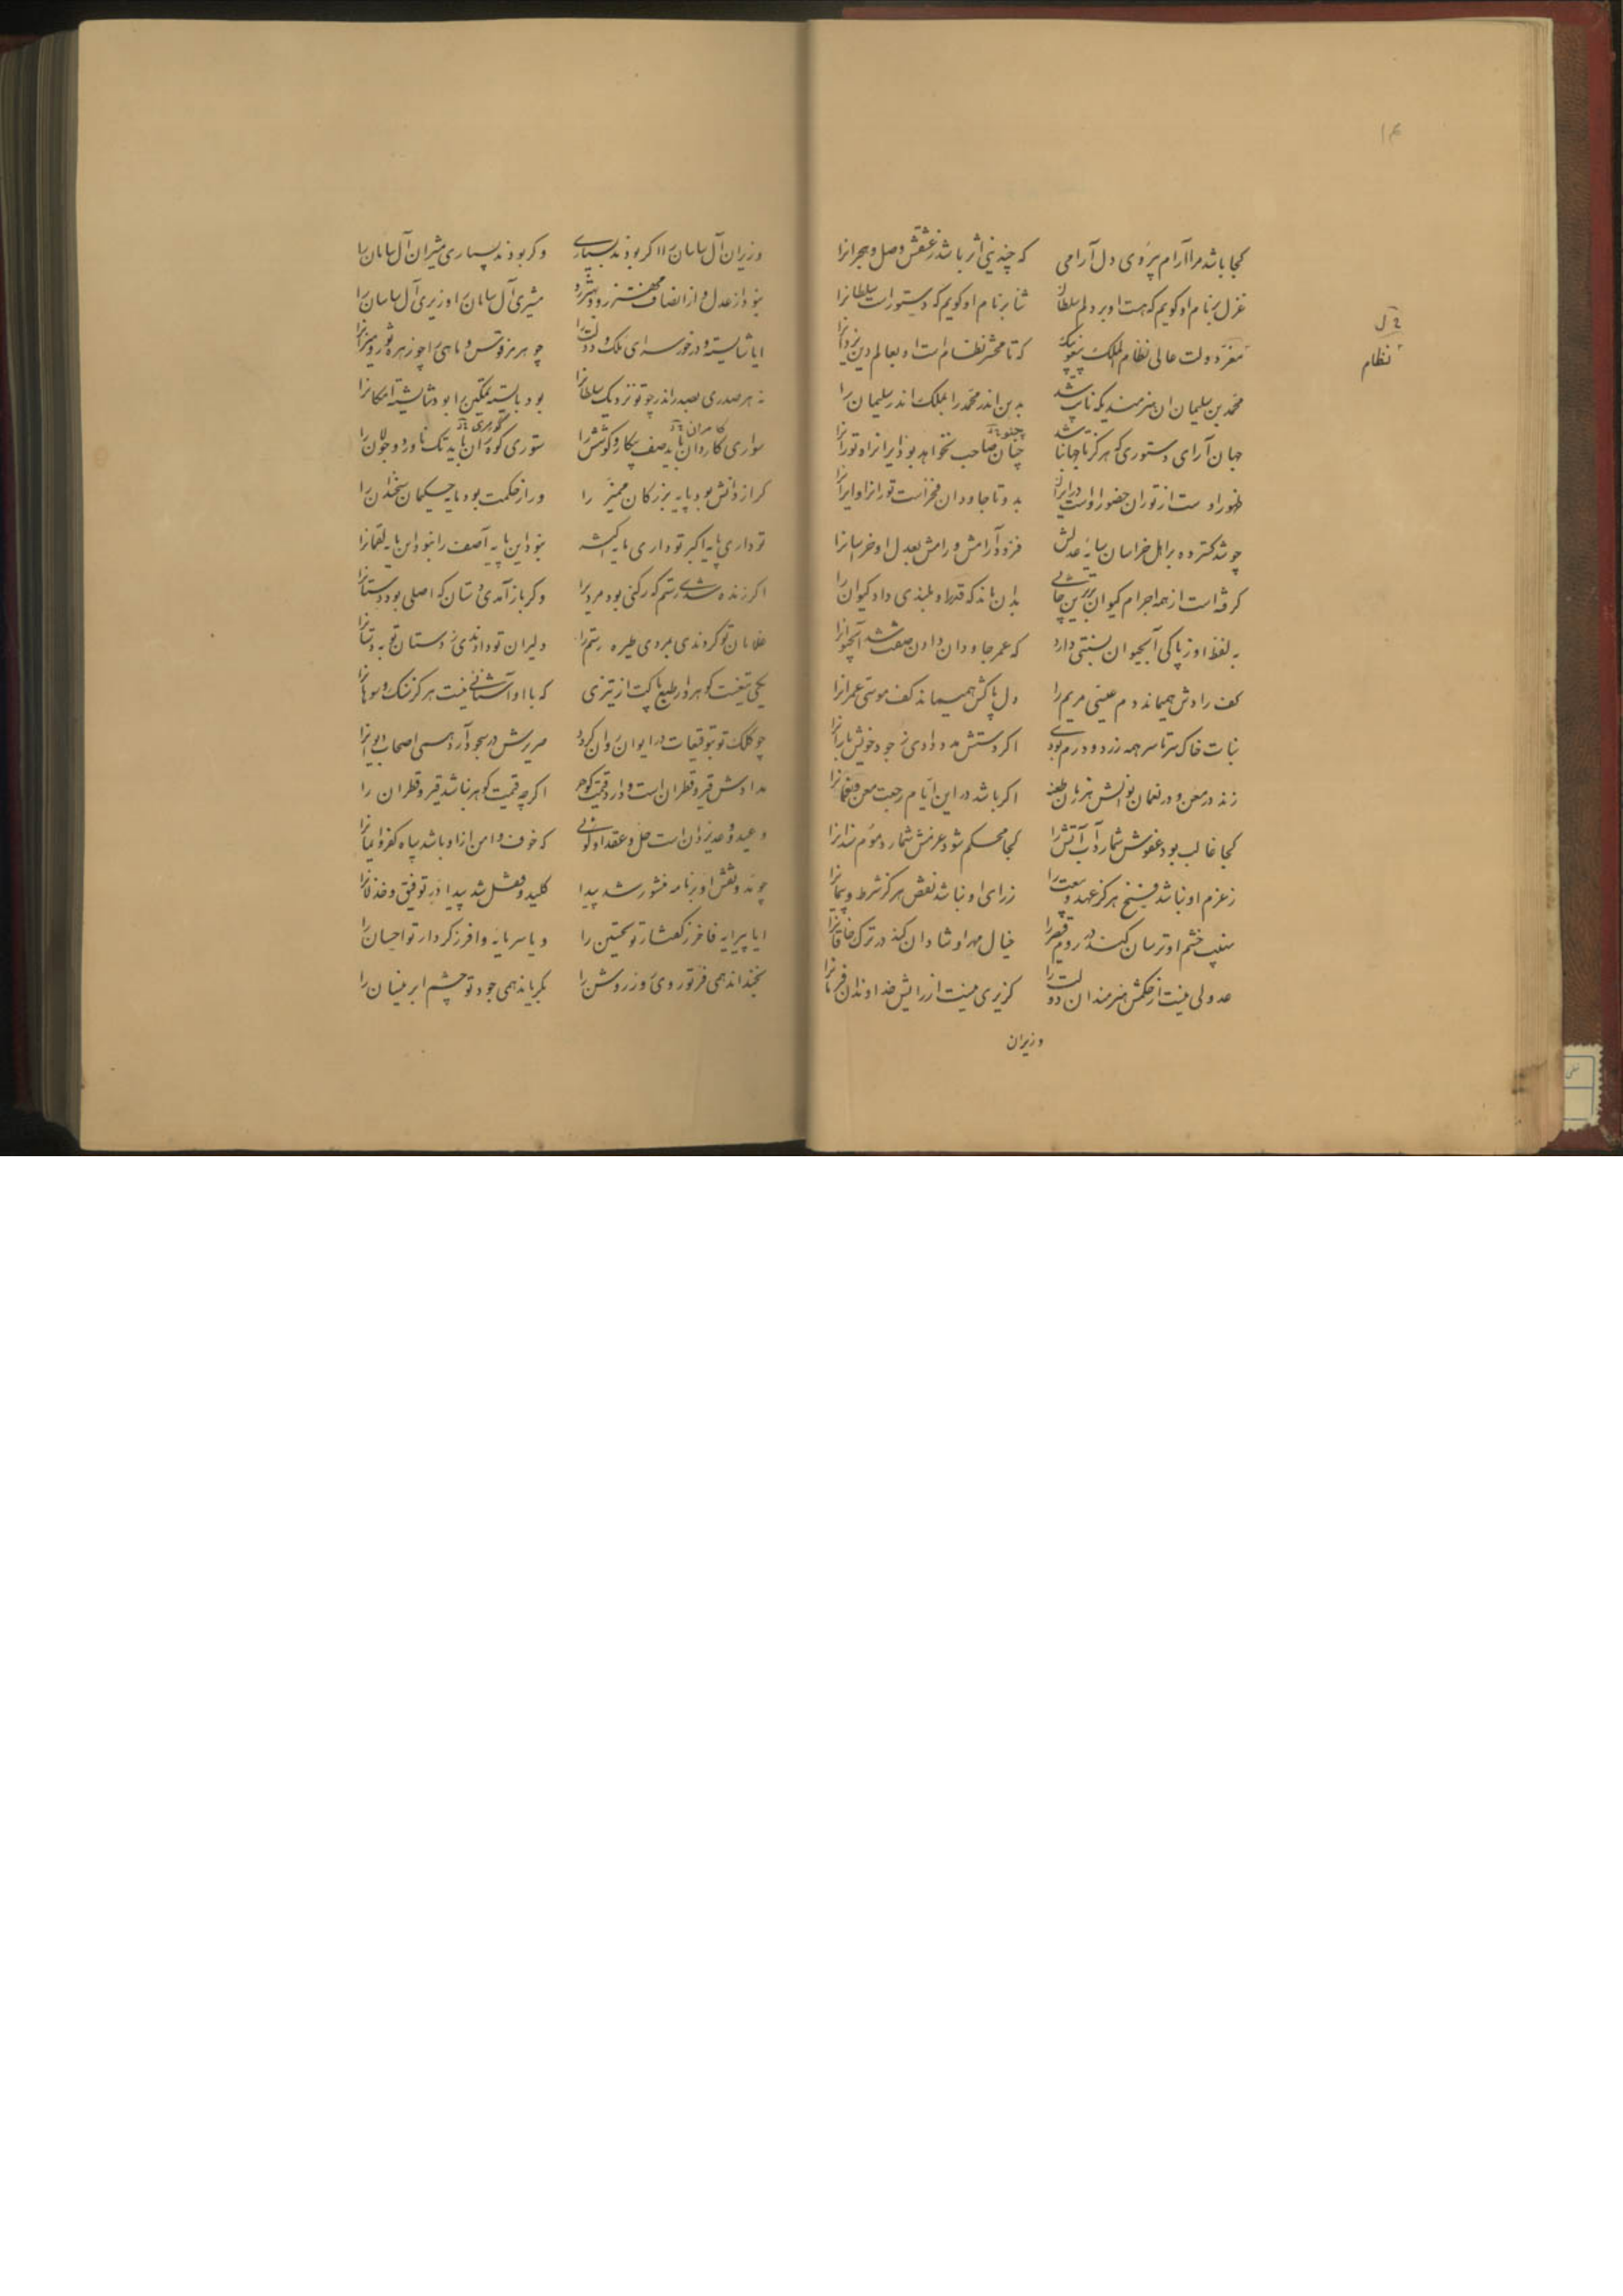 کجا باشد مرا آرام بر روی دل آرامی که چندینی اثر باشد ز عشقش وصل و هجرانرا
غزل بر نام او کویم که هست او بر دلم سلطان ثنا بر نام او کویم که دستورست سلطانرا
جمال دولت عالی نظام الملک که تا محشر نظام است او بعالم دین یزدانرا
محمد بن سلیمان ان هنرمندیکه ناب شد بدین اندر محمد را بملک اندر سلیمان را
جهان آرای دستوری که هرکز تا جهان باشد چنان صاحب نخواهد بود ایرانرا و تورانرا
ظهور او ست از توران حضور او است در ایران بدو تا جاودان فخر است تورانرا و ایرانرا
چو شد کسترده بر اهل خراسان سایه عدلش فزود آرامش و رامش بعدل او خراسانرا
کرفته است از همه اجرام کیوان برترین جائی بدان ماند که قدر او بلندی داد کیوان را
به لفظ او ز پاکی آبحیوان نسبتی دارد که عمر جاودان دادن صفت شد آبحیوانرا
کف رادش همیماند دم عیسی مریم را دل پاکش همیماند کف موسی عمرانرا
نبات خاک سرتاسر همه زر و درم بودی اکر دستش مدد دادی ز جود خویش بارانرا
زند در معن و در نعمان نوالش هر زمان طعنه اکر باشد در این ایام رجعت معن و نعمانرا
کجا غالب بود عفوش شمارد آب آتش را کجا محکم شود عزمش شمارد موم سندانرا
ز عزم او نباشد فسخ هرکز عهد و بیعت را ز رای او نباشد نقض هرکز شرط و پیمانرا
نهیب خشم او ترسان کند در روم قیصر را خیال مهر او شادان کند در ترک خاقانرا
عدولی نیست از حکمش هنرمندان دولت را کزیری نیست از رایش خداوندان فرمانرا
وزیران
نظام
وزیران آل سامان را اکر بودند بسیاری وکر بودند بسیاری مشیران آل سامان را
نبود از عدل و از انصاف مشیری آل سامان را وزیری آل سامان را
ایا شایسته و در خور سرای ملک و دولت را چو هرمز قوس و ماهی را چو زهره ثور و میزانرا
نه هر صدری بصدر اندر چو تو نزدیک سلطانرا بود بایسته تمکین را بود شایسته امکانرا
سواری کاردان باید صف پیکار و کوشش را ستوری کوه ران باید تک ناورد و جولان را
کامران
کوهری
کر از دانش بود پایه بزرکان ممیز را ور از حکمت بود مایه حکیمان سخندان را
تو داری پایه اکبر تو داری مایه نبود این پایه آصف را نبود این مایه لقمانرا
اکر زنده شدی رستم که رکنی بود مردیرا وکر باز آمدی دستان که اصلی بود دستانرا
غلامان تو کردندی بمردی طیره رستم را دلیران تو دادندی ز دستان توبه دستانرا
یکی تیغست کوهردار طبع پاکت از تیزی که با او آشنائی نیست هرکز سنک و سوهانرا
چو کلک تو توقیعات در ایوان روان کردد صریرش در سجود آرد همی اصحاب دیوانرا
مدادش قیر و قطران است و دارد قیمت کوهر اکرچه قیمت کوهر نباشد قیر و قطران را
وعید و وعد یزدان است حل و عقد او کوئی که خوف و امن ازاو باشد سپاه کفر و ایمانرا
چو بند و نقش او بر نامه منشور شد پیدا کلید و قفل شد پیدا در توفیق و خذلانرا
ایا پیرایه فاخر ز کفتار تو تحسین را و یا سرمایه وافر ز کردار تو احسان را
بخنداند همی فر تو روی روز روشن را بکریاند همی جود تو چشم ابر نیسان را